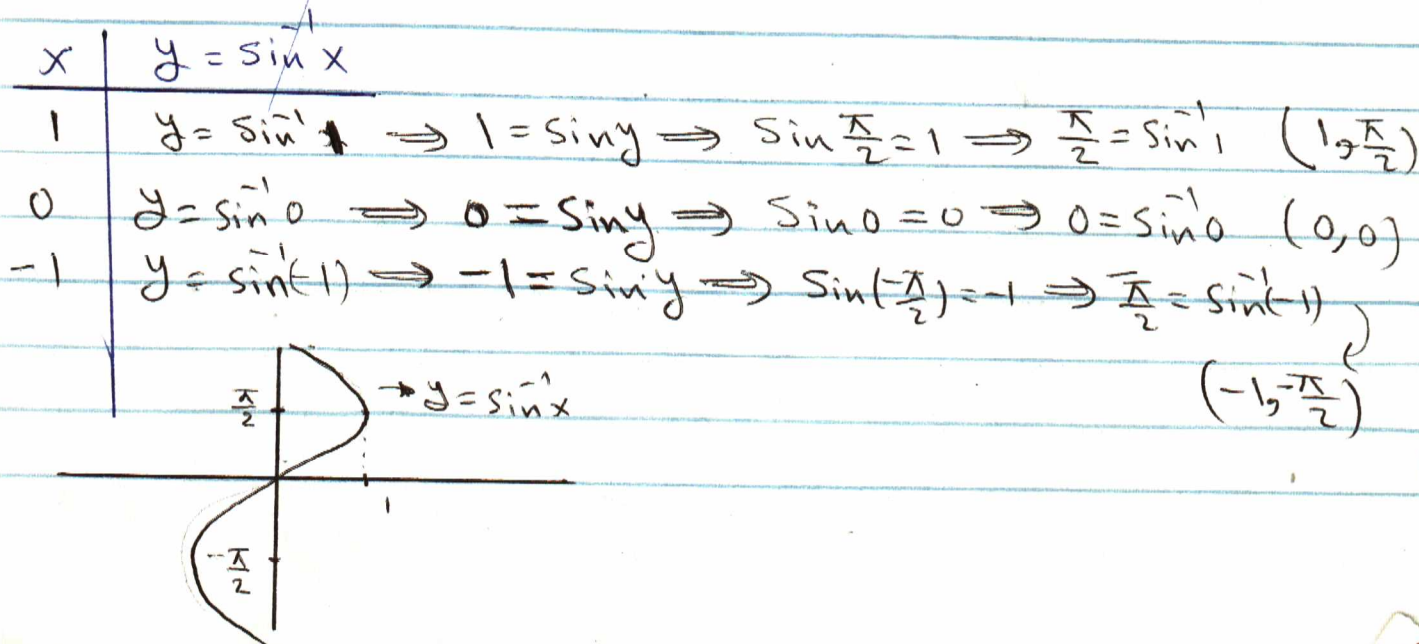 x | y = sin⁻¹ x
1 | y = sin⁻¹ 1 ⇒ 1 = sin y ⇒ sin π/2 = 1 ⇒ π/2 = sin⁻¹ 1 (1, π/2)
0 | y = sin⁻¹ 0 ⇒ 0 = sin y ⇒ sin 0 = 0 ⇒ 0 = sin⁻¹ 0 (0,0)
-1 | y = sin⁻¹(-1) ⇒ -1 = sin y ⇒ sin(-π/2) = -1 ⇒ -π/2 = sin⁻¹(-1)
(-1, -π/2)
π/2 → y = sin⁻¹ x
1
-π/2